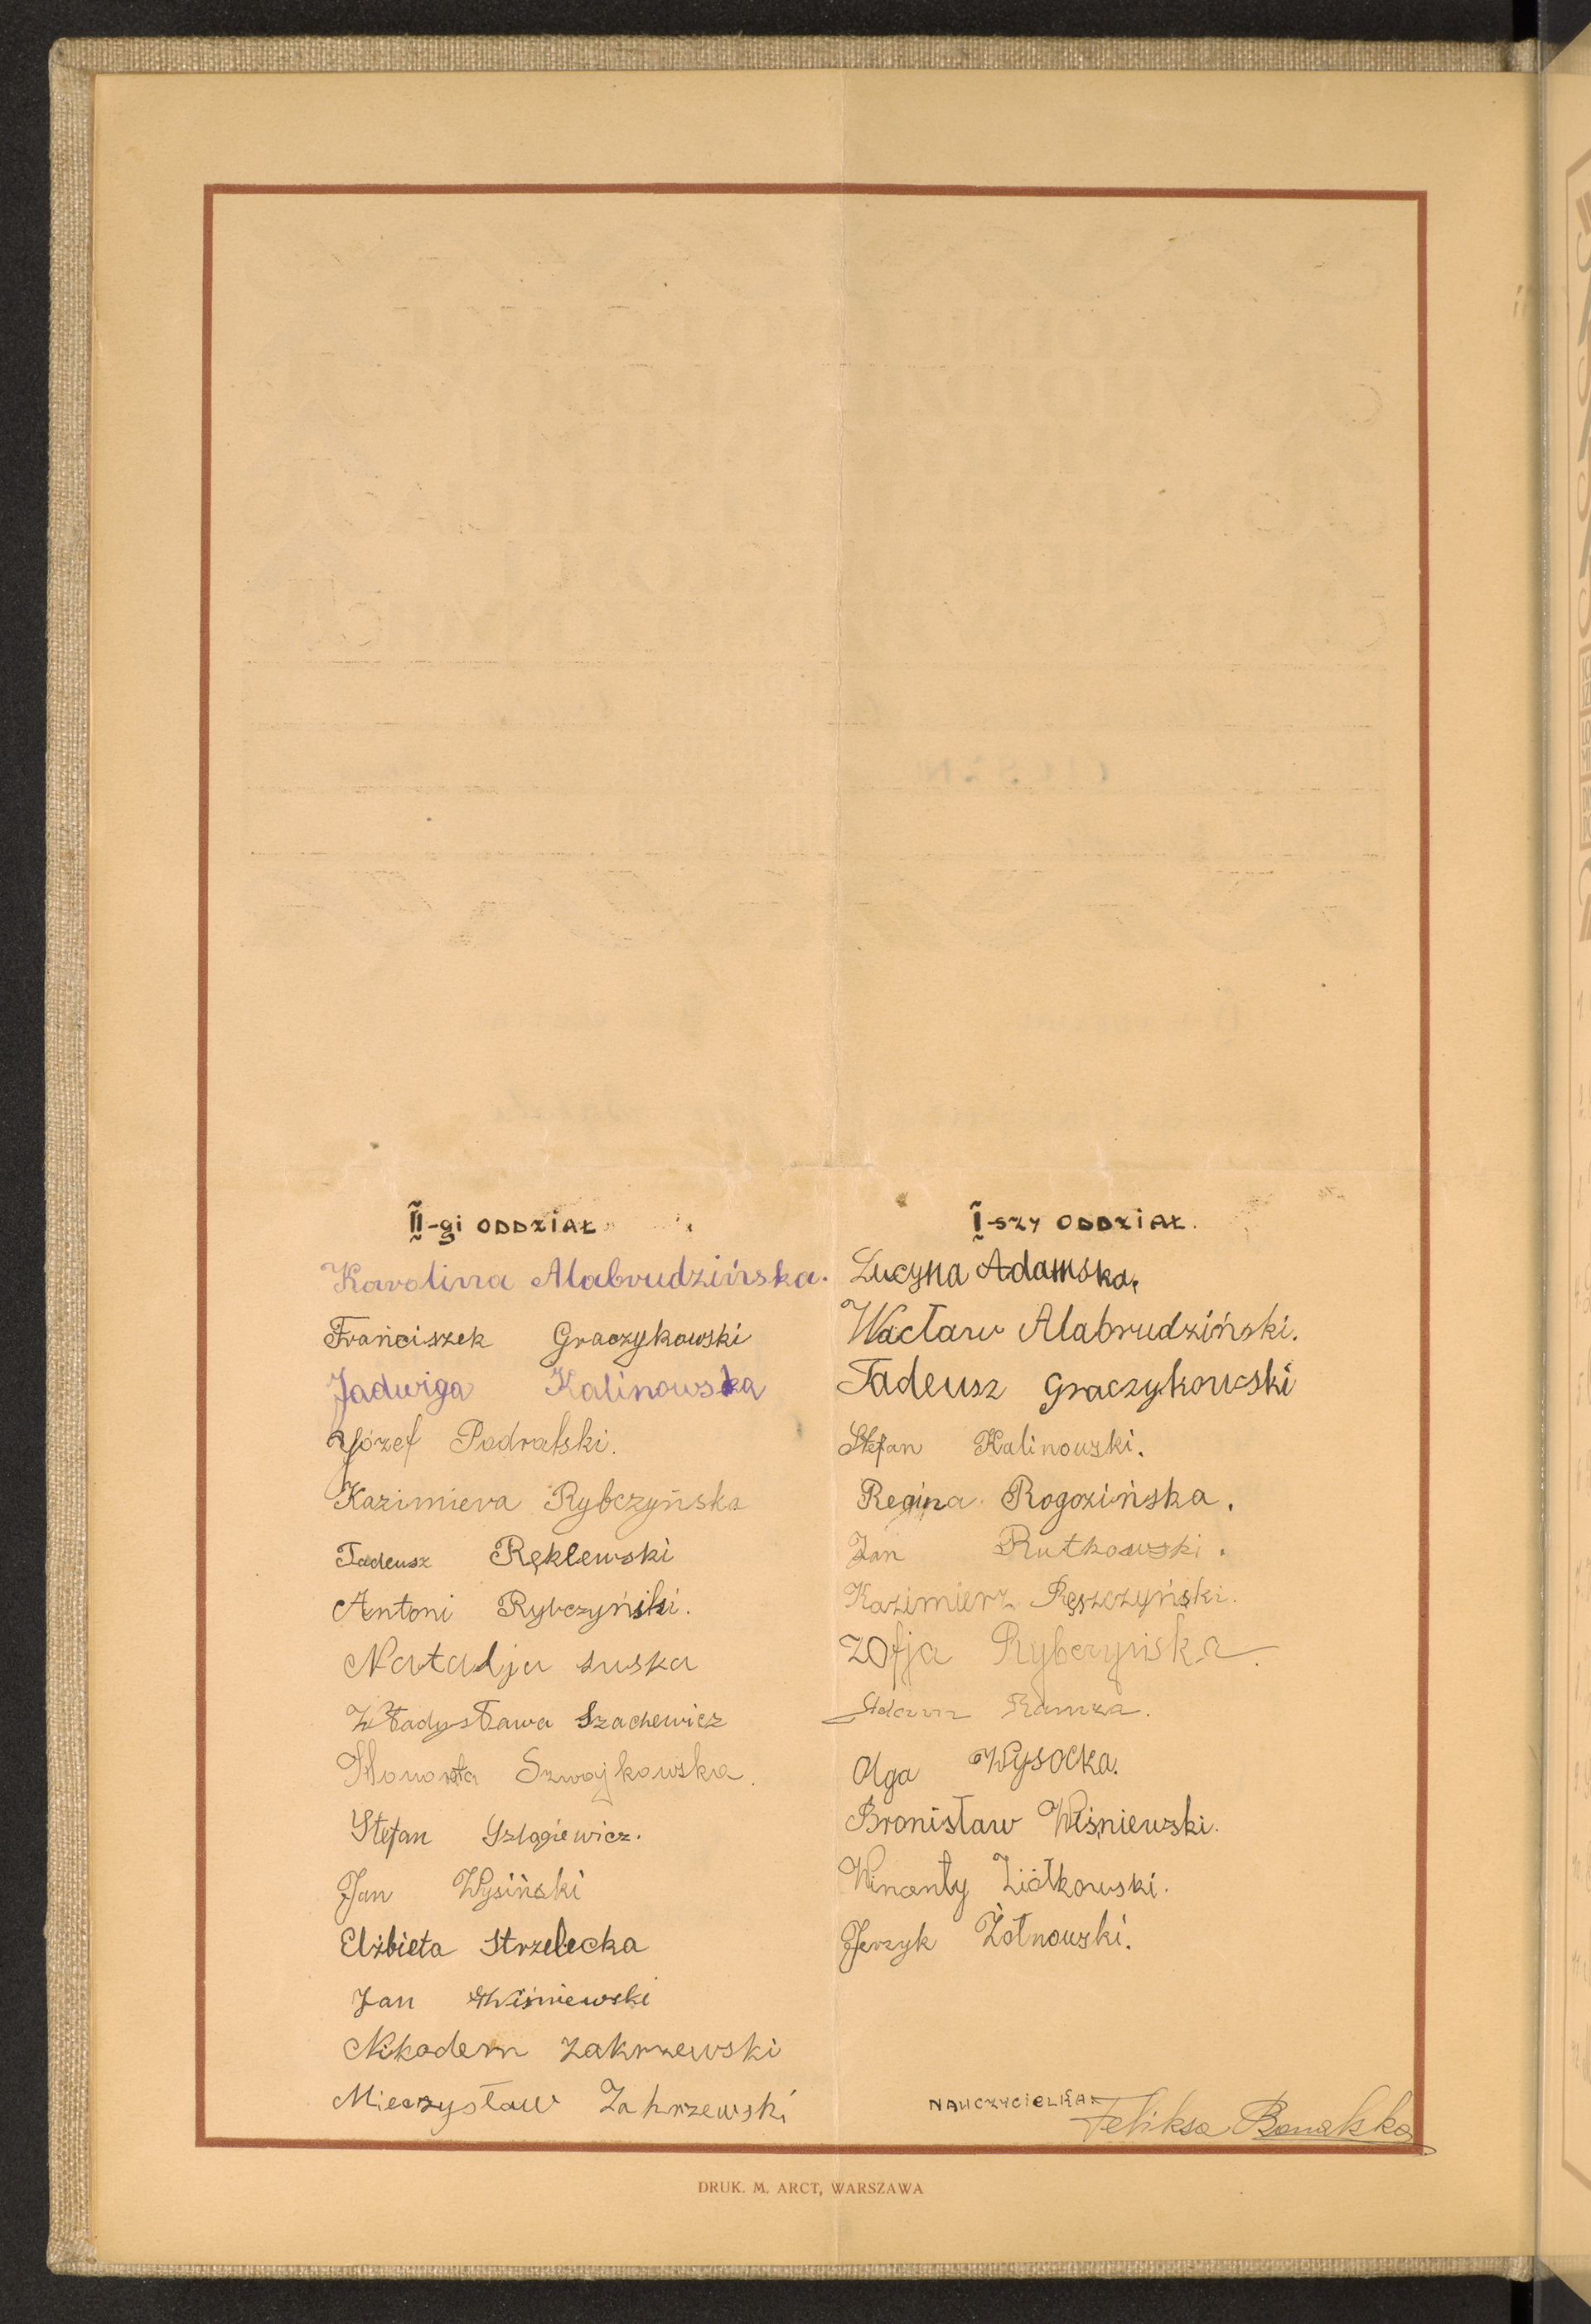 II-gi ODDZIAŁ
Karolina Alabrudzińska.
Franciszek Graczykowski
Jadwiga Kalinowska
Józef Podralski.
Kazimiera Rybczyńska
Tadeusz Ręklewski
Antoni Rybczyński.
Natalja Suska
Władysława Szachewicz
Honorata Szwajkowska.
Stefan Szlagiewicz.
Jan Wysiński
Elżbieta Strzelecka
Jan Wiśniewski
Nikodem Zakrzewski
Mieczysław Zakrzewski
I-szy ODDZIAŁ.
Lucyna Adamska.
Wacław Alabrudziński.
Tadeusz Graczykowski
Stefan Kalinowski.
Regina Rogozińska.
Jan Rutkowski.
Kazimierz Ręszczyński.
Zofja Rybczyńska.
Adam Ramza.
Olga Wysocka.
Bronisław Wiśniewski.
Wincenty Ziółkowski.
Jerzyk Żołnowski.
NAUCZYCIELKA
Feliksa
DRUK. M. ARCT, WARSZAWA